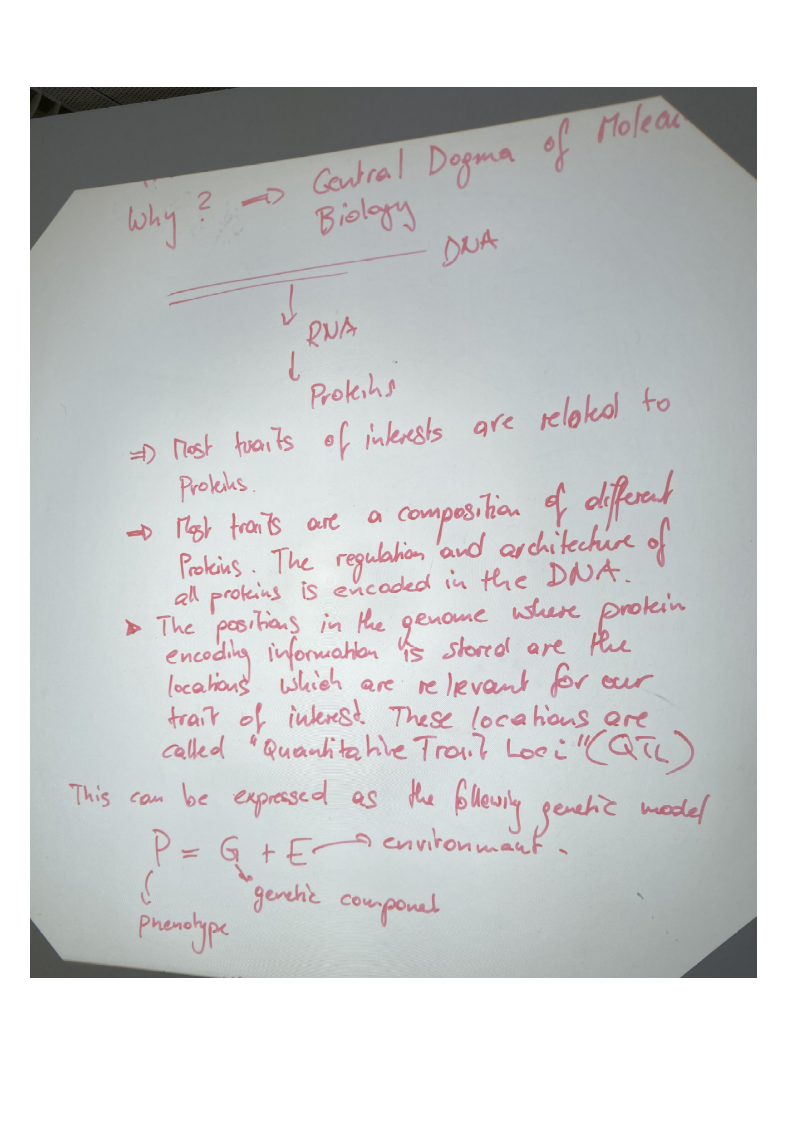 Why? => Central Dogma of Molecu
Biology
DNA
RNA
Proteins
=> Most traits of interests are related to
Proteins.
=> Most traits are a composition of different
Proteins. The regulation and architecture of
all proteins is encoded in the DNA.
The positions in the genome where protein
encoding information is stored are the
locations which are relevant for our
trait of interest. These locations are
called "Quantitative Trait Loci" (QTL)
This can be expressed as the following genetic model
P = G + E → environment.
genetic component
phenotype